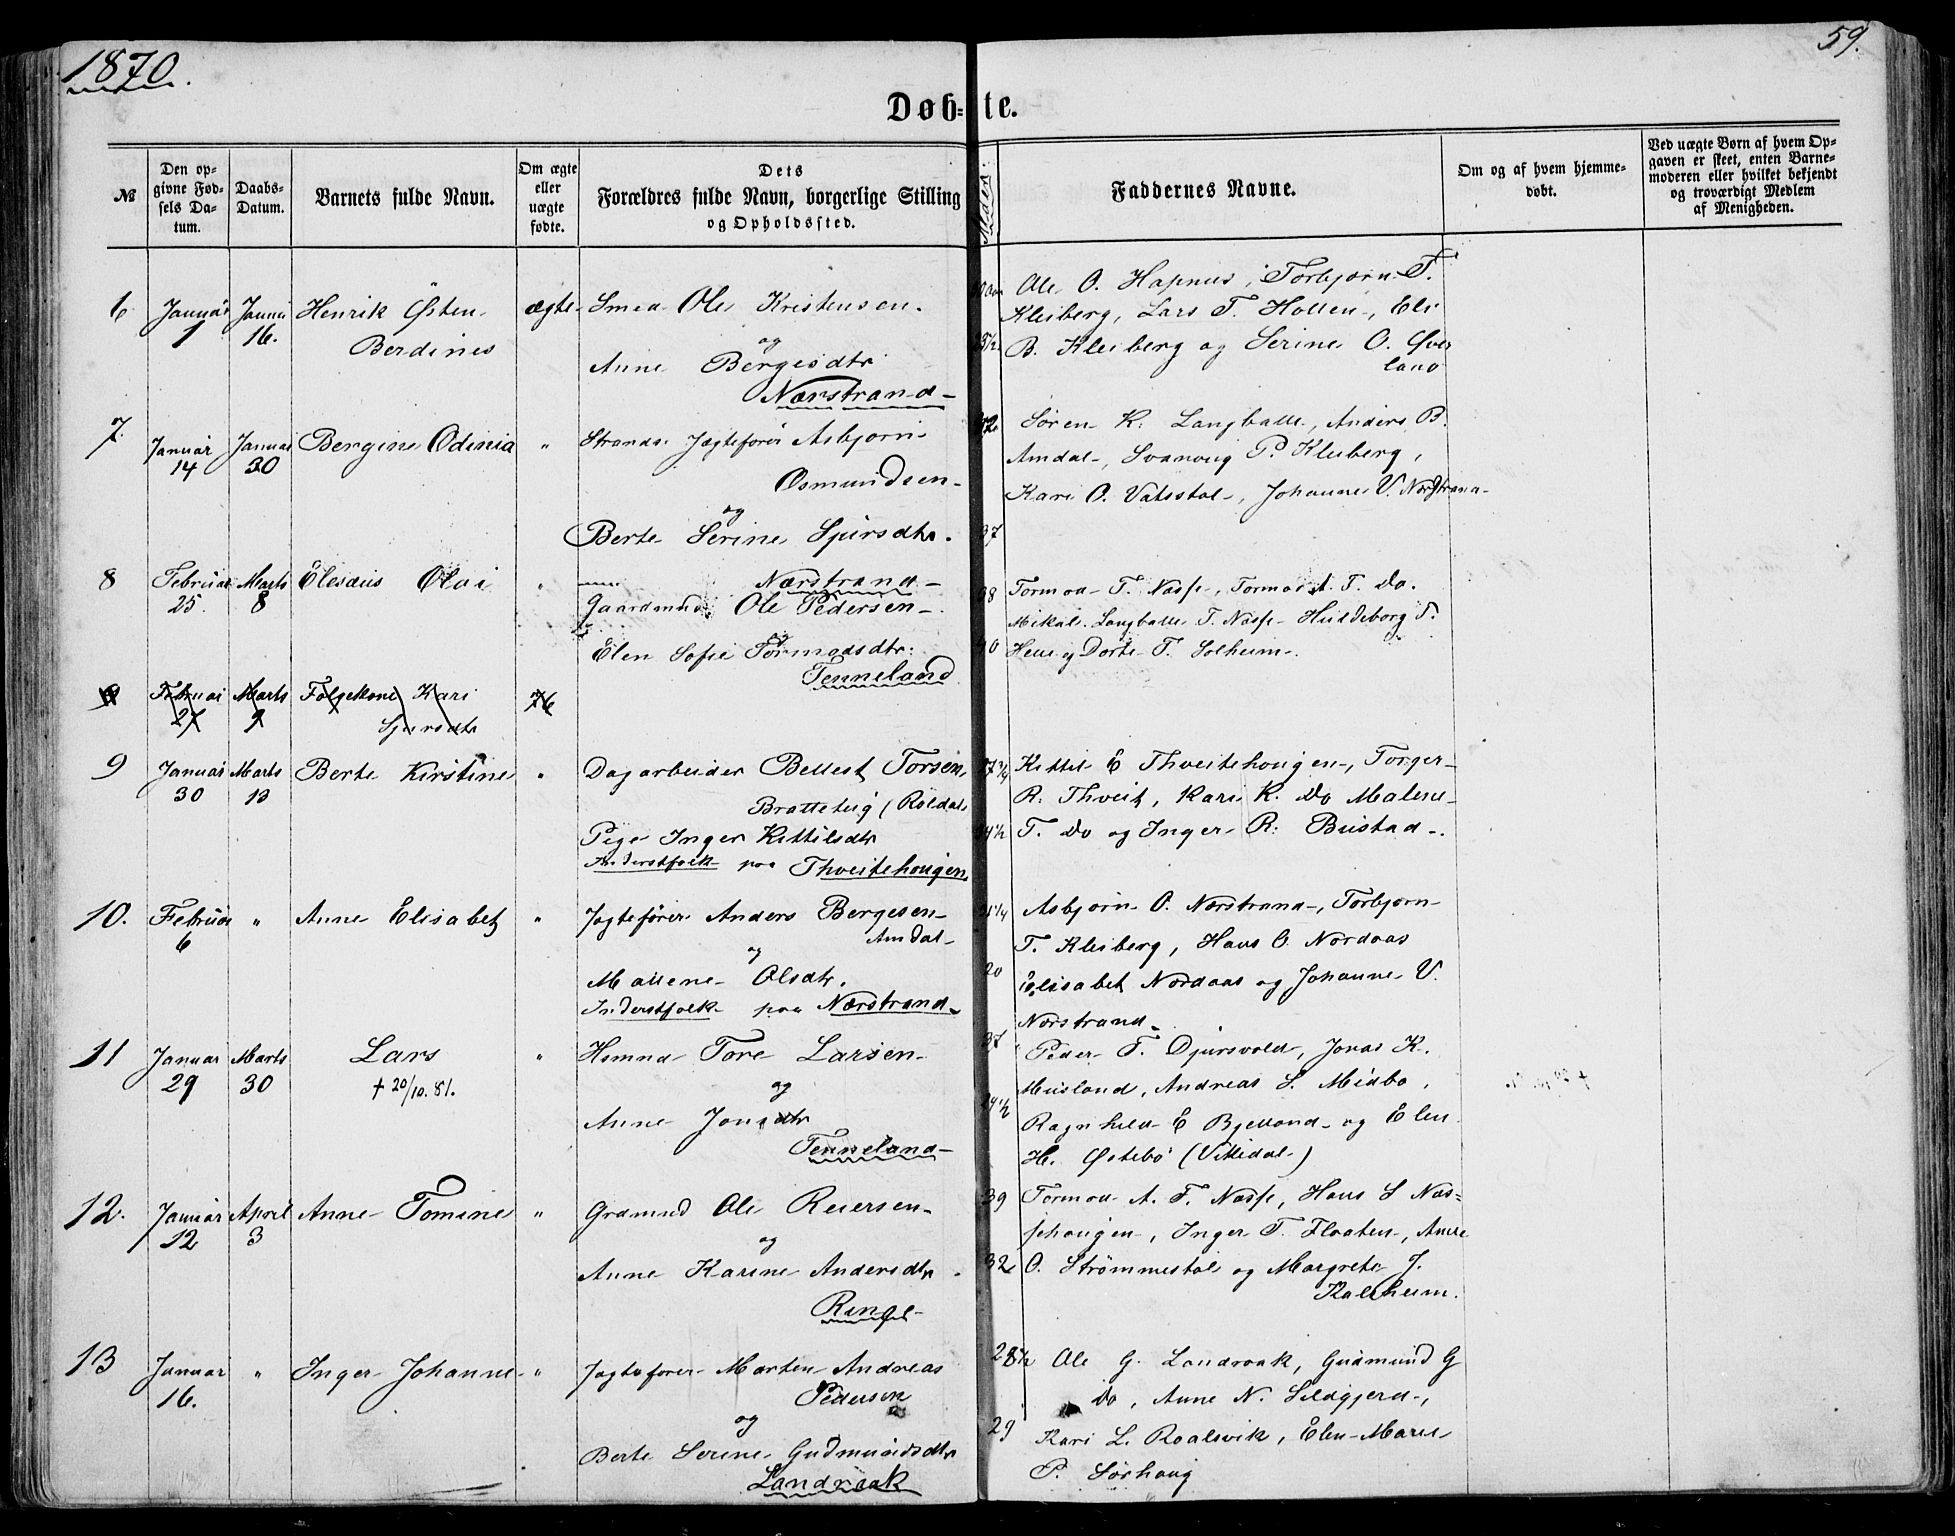 1870.
59.
Døb=te.
№
Den opgivne Fødsels Datum.
Daabs-Datum.
Barnets fulde Navn.
Om ægte eller uægte fødte.
Dets Forældres fulde Navn, borgerlige Stilling og Opholdssted.
Alder
Faddernes Navne.
Om og af hvem hjemmedøbt.
Ved uægte Børn af hvem Opgaven er skeet, enten Barnemoderen eller hvilket bekjendt og troværdigt Medlem af Menigheden.
6 Januar 1 Januar 16. Henrik Østen Berdines ægte
Smed Ole Kristensen
og
Anne Bergesdtr
Nærstrand
Ole O. Hapnes, Torbjørn T.
Kleiberg, Lars T. Hollen, Eli
B. Kleiberg og Serine O. Øver
land
7. Januar 14 Januar 30 Bergine Odinia "
Strands. Jægtefører Asbjørn
Osmundsen
og
Berte Serine Sjursdtr.
Nærstrand
37
Søren K. Langballe, Anders B.
Amdal, Svanaug P. Kleiberg,
Kari O. Vatsstøl, Johanne V. Nordstrand
8 Februar 25. Marts 8 Elesæus Olai "
Gaardmd. Ole Pedersen
og
Elen Sofie Tormodsdtr.
Tenneland
38
40
Tormod T. Næsse, Tormod A. T. Do.
Mikal Langballe T. Næsse Huldeborg T.
Helle og Dorte T. Solheim.
Februar 27 Marts 9 Følgekone Kari
Sjursdtr 76
9 Januar 30 Marts 13 Berte Kirstine "
Dagarbeider Bellest Torsen,
Bratteteig (Røldal)
Pige Inger Kittilsdtr
Inderstfolk paa Thveitehougen
27 3/4
24 1/2
Kittil E Thveitehougen, Torger
R. Thveit, Kari K. Do Malene
T. Do og Inger R. Bustad.
10. Februar 6 " Anne Elisabet "
Jagtefører Anders Bergesen
Amdal
og
Mallene Olsdtr.
Inderstfolk paa Nærstrand
20
Asbjørn O. Nærstrand, Torbjørn
T. Kleiberg, Hans O. Nordaas
Elisabet Nordaas og Johanne V.
Nærstrand
11 Januar 29 Marts 30 Lars "
† 20/10. 81.
Hsmnd Tore Larsen
og
Anne Jonsdtr
Tenneland
37
24 1/2
Peder T. Djursvold, Jonas K.
Musland, Andreas S. Midbø,
Ragnhild E Bjelland og Elen
H. Østebø (Vikedal)
12. Januar 12 April 3 Anne Tomine "
Grdmnd Ole Reiersen
og
Anne Karine Andersdtr
Ringe
39
32
Tormod A. T. Næsse, Hans S Næs=
sehougen, Inger T. Flaaten, Anne
O. Strømmestøl og Margrete J.
Kalsheim.
13 Januar 16. " Inger Johanne "
Jagtefører Marten Andreas
Pedersen
og
Berte Serine Gudmundsdtr
Landraak
28 1/2
29
Ole G. Landraak, Gudmund G
Do, Anne N. Sildgjerd,
Kari L. Roalsvik, Elen Marie
P. Sørhaug